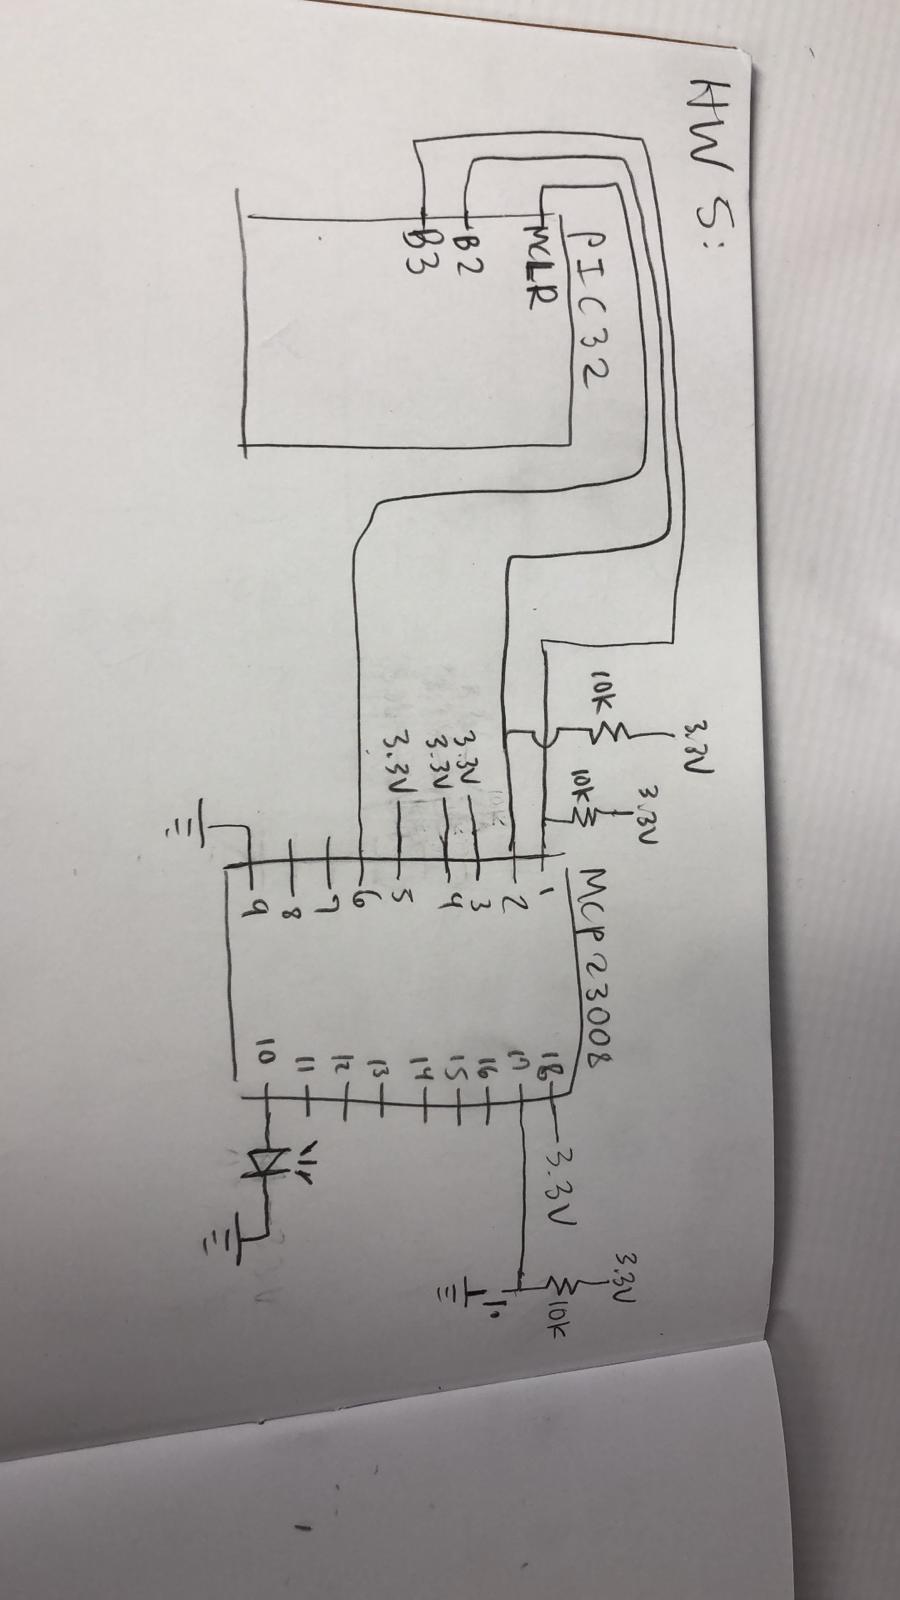 HW 5:
PIC32
MCLR
B2
B3
10K
3.3V
10K
3.3V
3.3V
3.3V
3.3V
MCP23008
1
2
3
4
5
6
7
8
9
18
17
16
15
14
13
12
11
10
3.3V
3.3V
10K